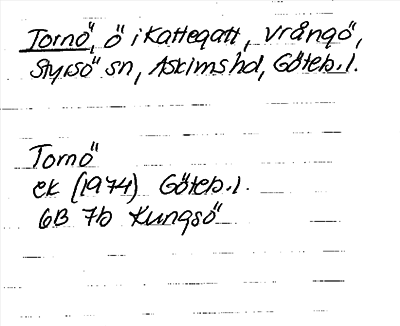 Tornö, ö i Kattegatt, Vrångö,
Styrsö sn, Askims hd, Göteb. l.
Tornö
ek (1974) Göteb. l.
6B 7b Kungsö